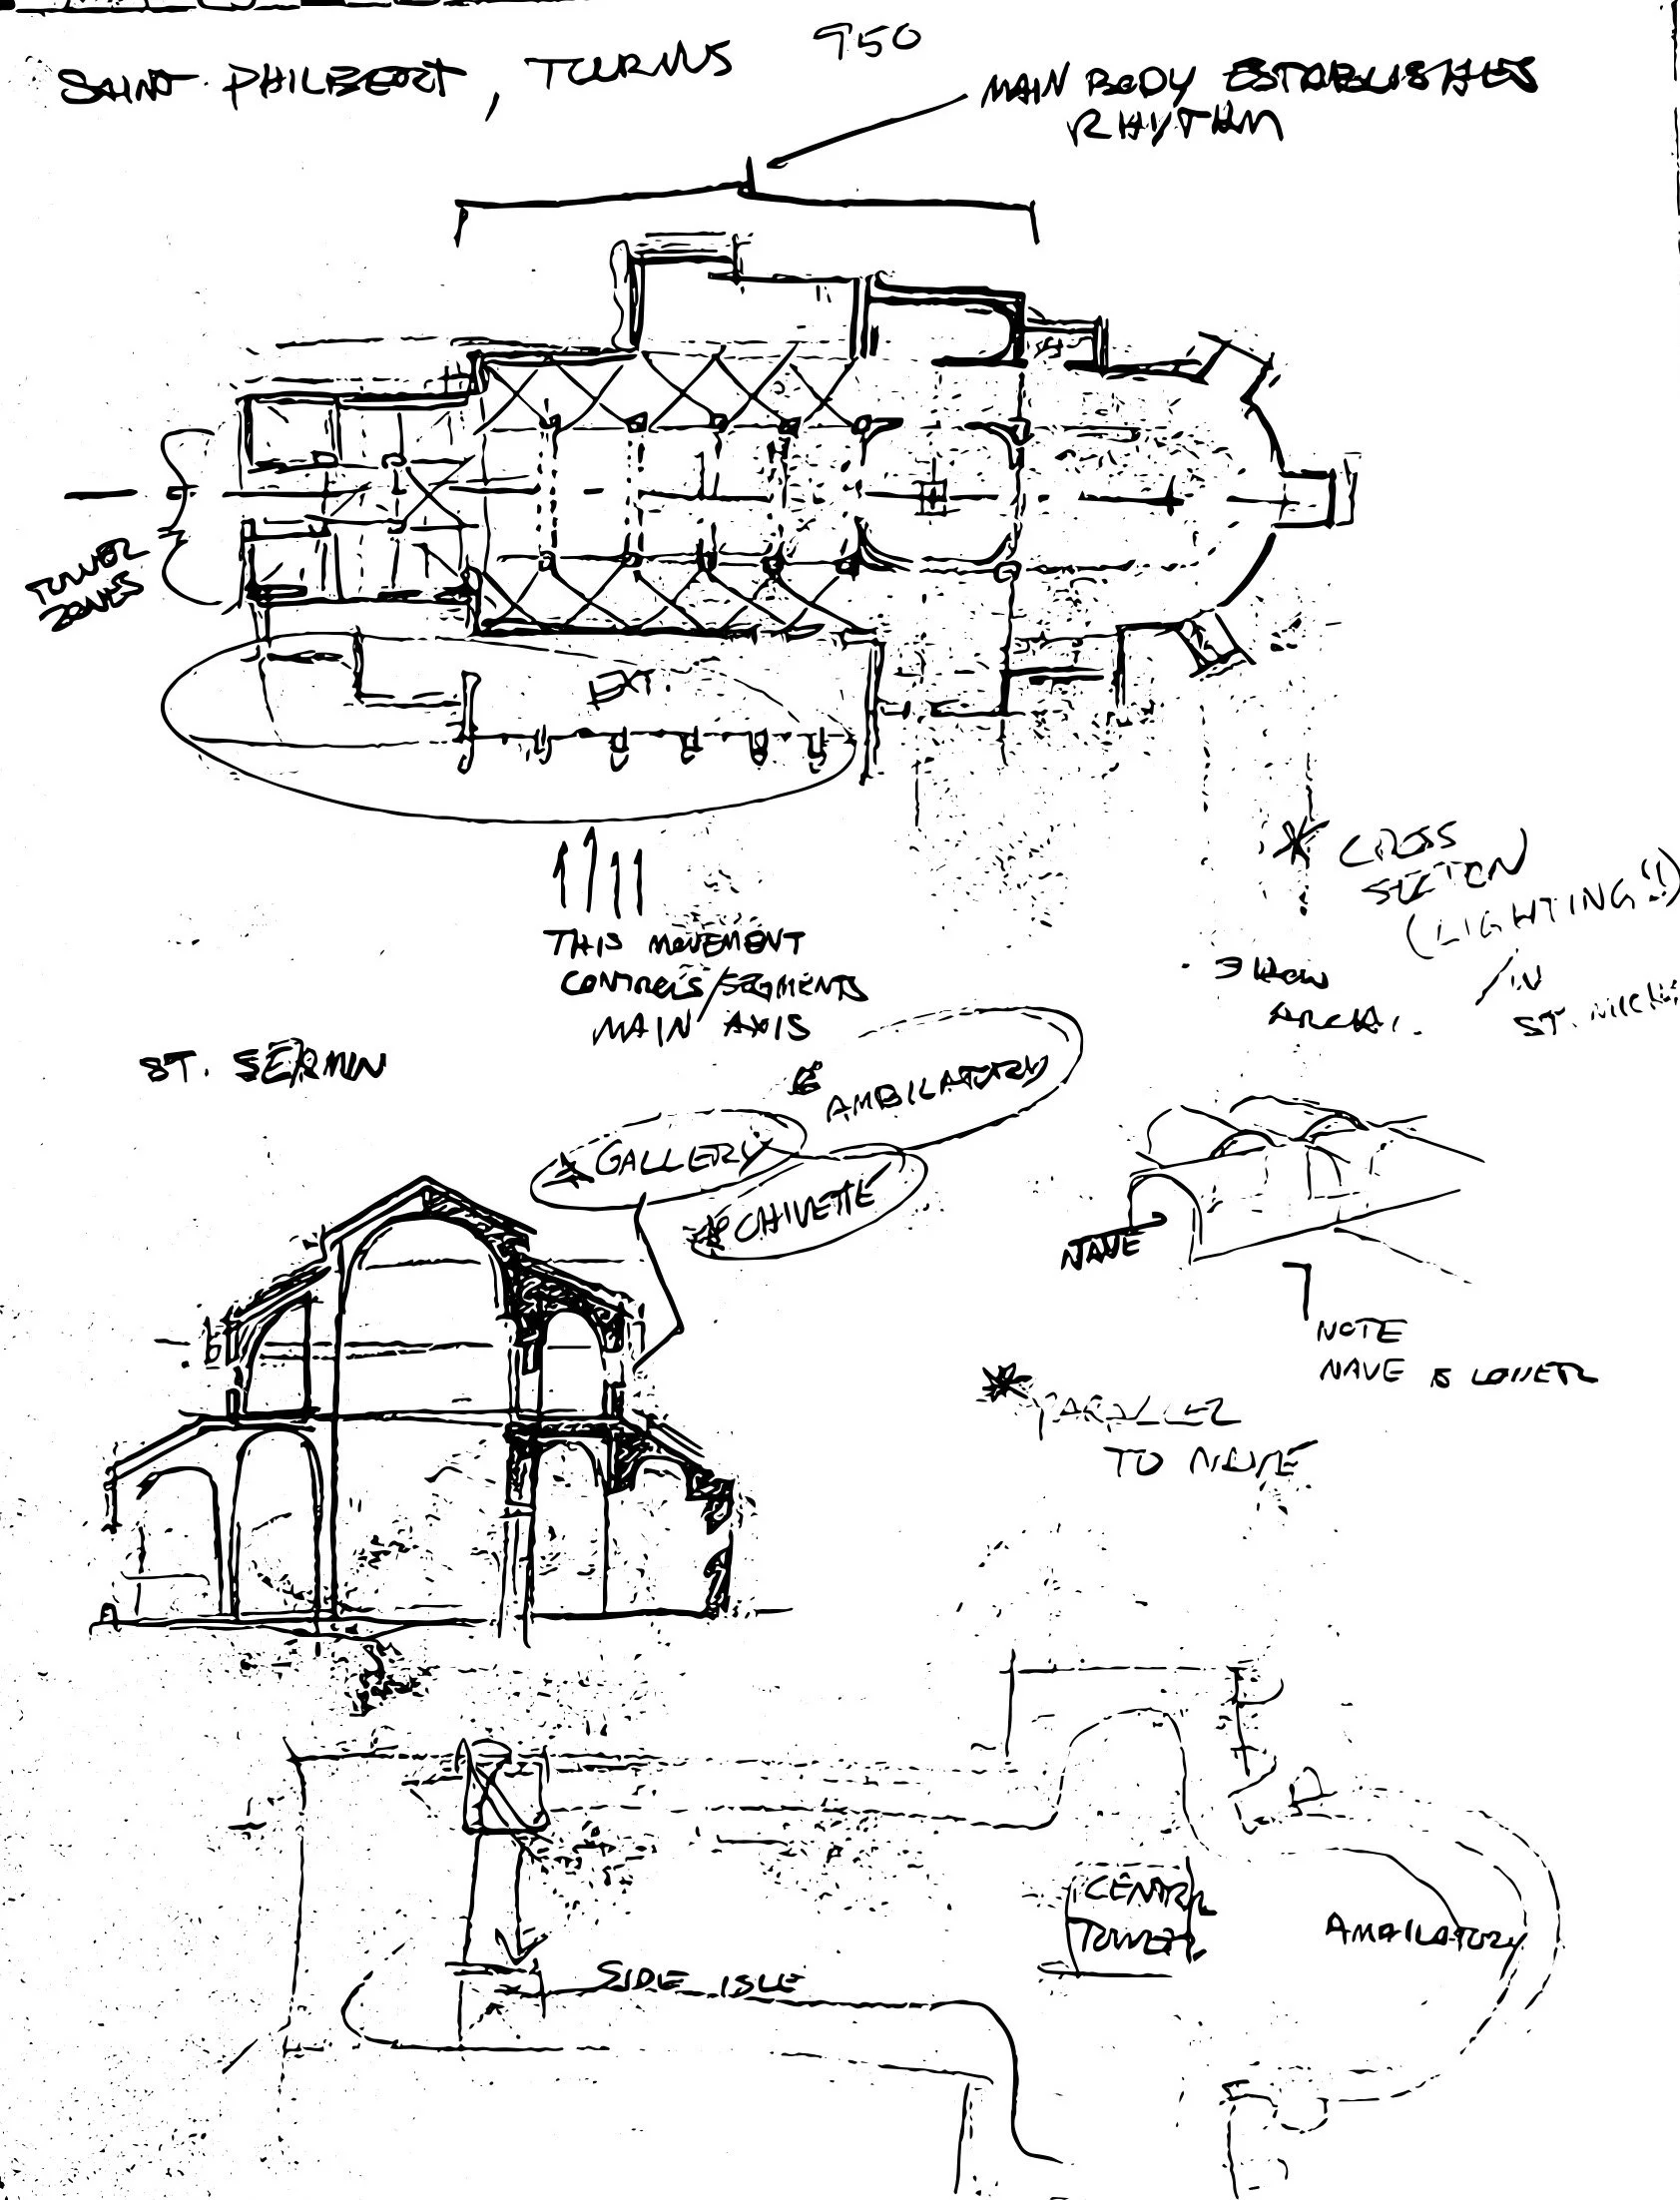 SAINT PHILBERT, TOURNUS 950
MAIN BODY ESTABLISHES
RHYTHM
TOWER
ZONES
EXT.
THIS MOVEMENT
CONTROLS/SEGMENTS
MAIN AXIS
* CROSS
SECTION
(LIGHTING!!)
IN
ARCH.
ST. SERNIN
AMBILATORY
* GALLERY
* CHIVETTE
NAVE
NOTE
NAVE IS LOWER
* PARALLEL
TO NAVE
CENTRL
TOWER
AMBILATORY
SIDE ISLE